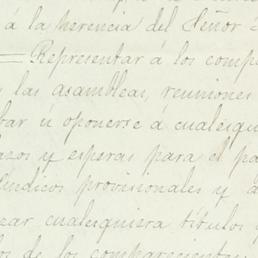 á la herencia del Señor
= Representar á los comp
las asambleas, reuniones
bar ú oponerse á cualesqu
azos y esperas para el pa
Síndicos provisionales y
zar cualesquiera títulos y
os de los comparecientes